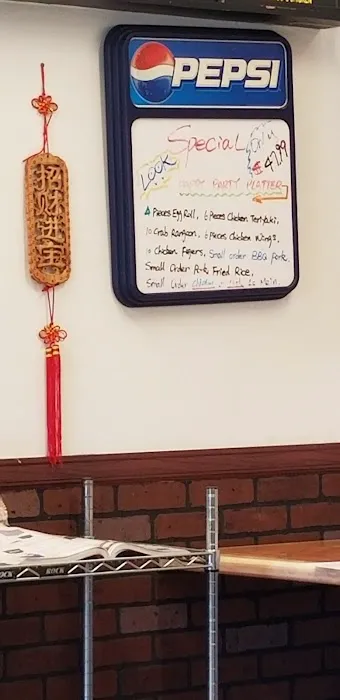 PEPSI
Special
Only
$47.99
LOOK
PARTY PLATTER
4 Pieces Egg Roll, 6 Pieces Chicken Teriyaki,
10 Crab Rangoon, 6 Pieces Chicken Wings,
10 Chicken Fingers, Small order BBQ Pork,
Small Order Pork Fried Rice,
Small Order Chicken
招财进宝
ROCK
ROCK